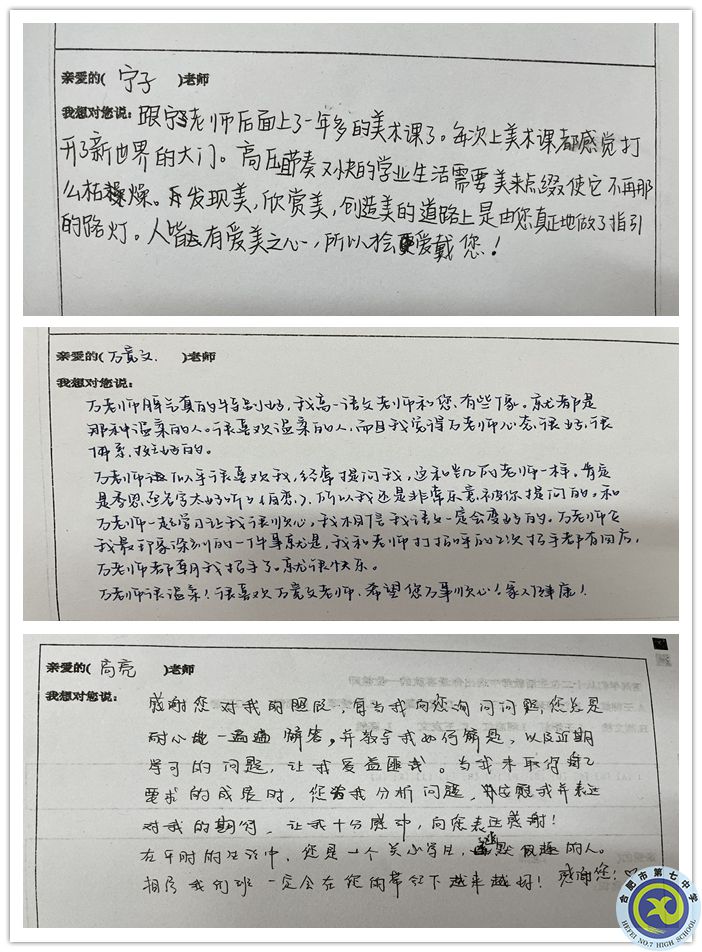 亲爱的(宁子)老师
我想对您说:跟宁老师后面上了一年多的美术课了。每次上美术课都感觉打
开了新世界的大门。高压节奏又快的学业生活需要美来点缀使它不再那
么枯燥。在发现美,欣赏美,创造美的道路上是由您真正地做了指引
的路灯。人皆有爱美之心,所以才会更爱戴您!
亲爱的(万竟文)老师
我想对您说:
万老师脾气真的特别好,我高一语文老师和您有些像。就都是
那种温柔的人。很喜欢温柔的人,而且我觉得万老师心态很好,很
佛系,挺好的。
万老师似乎很喜欢我,经常提问我,这和老师一样。肯定
是名字太好听了(自恋),所以我还是非常乐意被你提问的。和
万老师一起学习让我很顺心,我相信我语文一定会变好的。万老师令
我最印象深刻的一件事就是,我和老师打招呼的次招手都有回应,
万老师都朝我招手了。就很快乐。
万老师很温柔!很喜欢万竟文老师,希望您万事顺心!家人健康!
亲爱的(高亮)老师
我想对您说:
感谢您对我的照顾,每当我向您询问问题,您总是
耐心地一遍遍解答,并教导我如何解题,以及近期
学习的问题,让我受益匪浅。当我未取得
要求的成绩时,您为我分析问题,并安慰我并表达
对我的期待,让我十分感动,向您表达感谢!
在平时的生活中,您是一个关心学生,幽默风趣的人。
相信我们班一定会在您的带领下越来越好!感谢您!♡
合肥市第七中学
HEFEI NO.7 HIGH SCHOOL